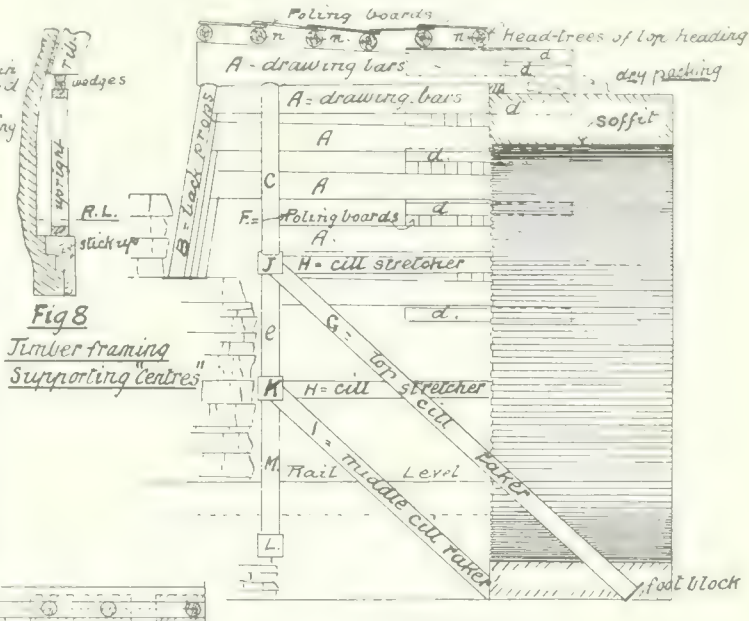 Poling boards
n n. n
Head-trees of top heading
A - drawing bars
d
d
dry packing
A = drawing bars
d
soffit
A
d.
C
A
F = Poling boards
d
A.
B = back props
J
H = cill stretcher
d.
G = top cill raker
e
K
H = cill stretcher
I = middle cill raker
M.
Rail Level
L.
foot block
rib
wedges
upright
R.L.
stick up
Fig 8
Timber framing
Supporting "Centres"